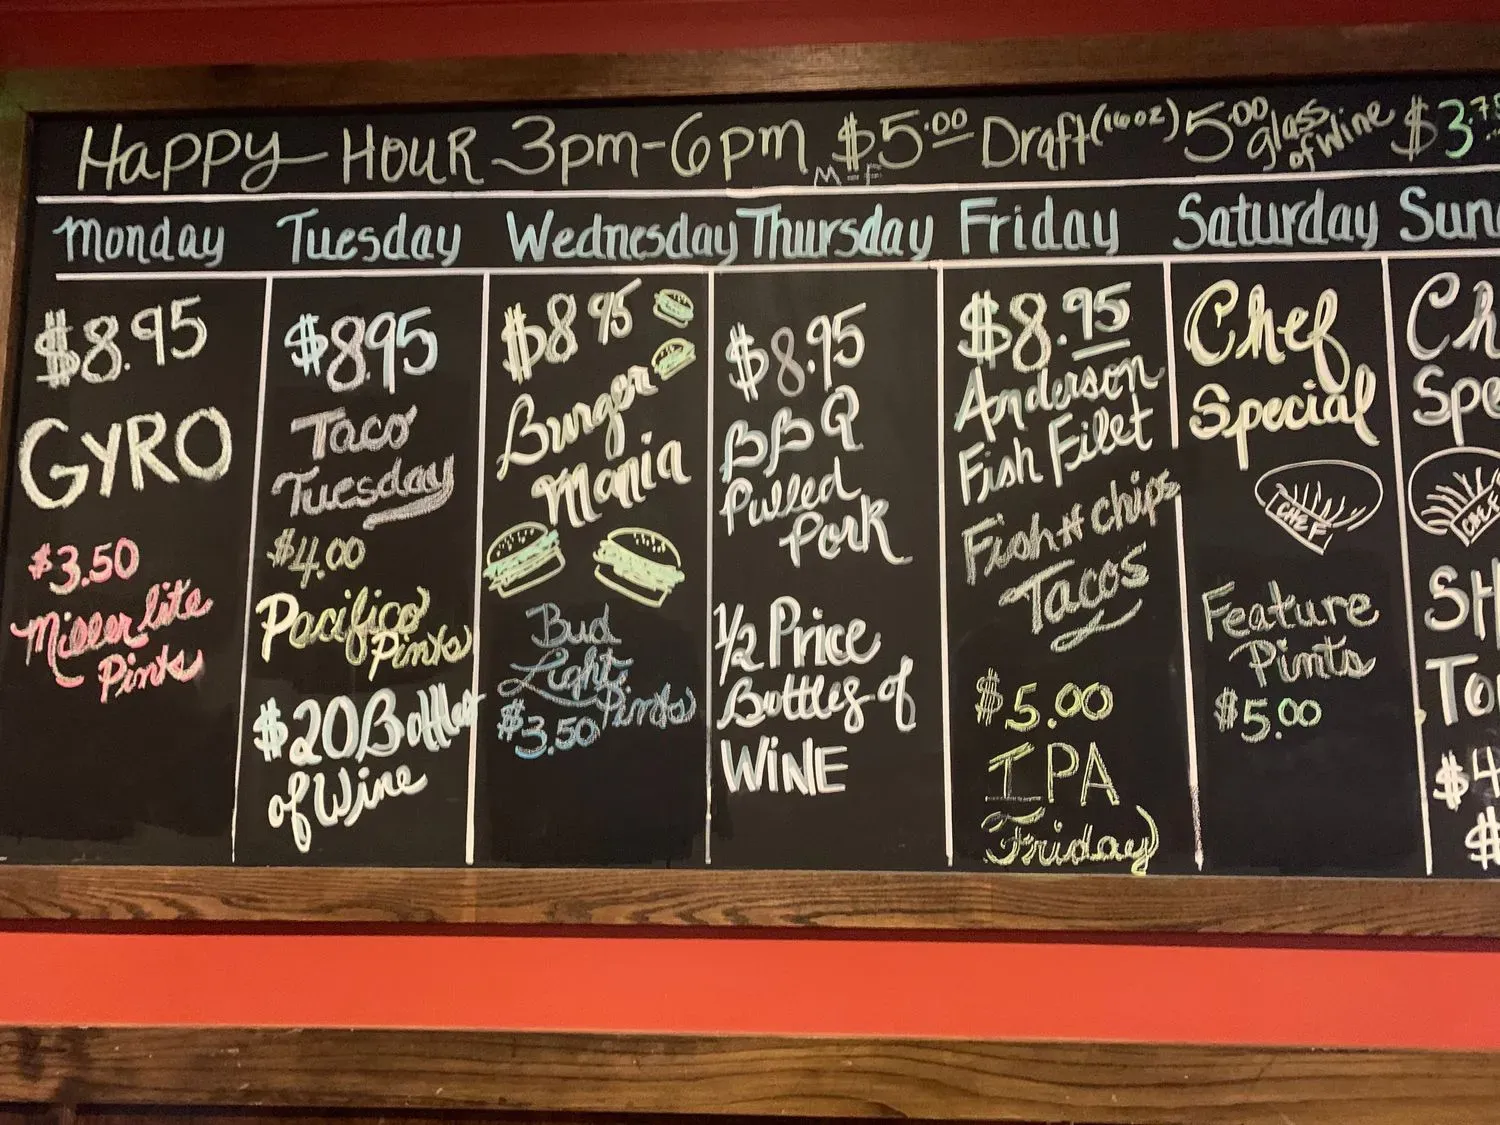 Happy Hour 3pm-6pm M-F $5.00 Draft (16oz) 5.00 glass of wine $3.75
Monday Tuesday Wednesday Thursday Friday Saturday Sun
$8.95
GYRO
$3.50
Miller lite
Pints
$8.95
Taco
Tuesday
$4.00
Pacifico
Pints
$20 Bottles
of Wine
$8.95
Burger
Mania
Bud
Light
Pints
$3.50
$8.95
BBQ
Pulled
Pork
1/2 Price
Bottles of
WINE
$8.95
Anderson
Fish Filet
Fish & chips
Tacos
$5.00
IPA
Friday
Chef
Special
CHEF
Feature
Pints
$5.00
Ch
Spe
CHEF
SH
To
$4
$